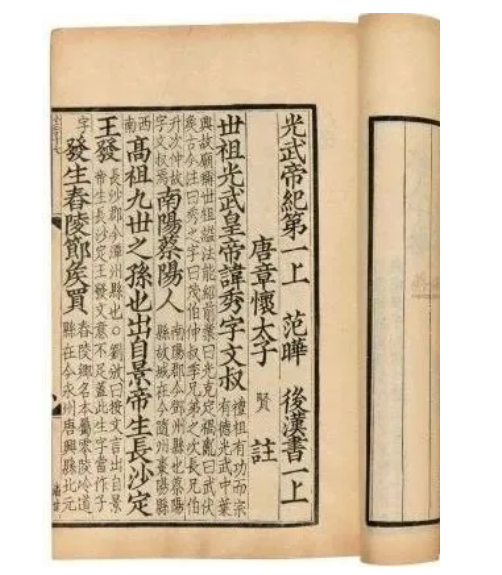 光武帝紀第一上 范曄 後漢書一上
唐章懷太子 賢 註
世祖光武皇帝諱秀字文叔 禮祖有功而宗
有德光武中葉
興故廟稱世祖謚法能紹前業曰光克定禍亂曰武伏
侯古今注曰秀之字曰茂伯仲叔季兄弟之次長兄伯
升次仲故
字文叔焉 南陽蔡陽人 南陽郡今鄧州縣也蔡陽
縣故城在今隨州棗陽縣
西
南 高祖九世之孫也出自景帝生長沙定
王發 長沙郡今潭州縣也○劉攽曰按文言出自景
帝生長沙定王發文意不足蓋此生字當作子
字 發生舂陵節侯買 舂陵鄉名本屬零陵泠道
縣在今永州唐興縣北元